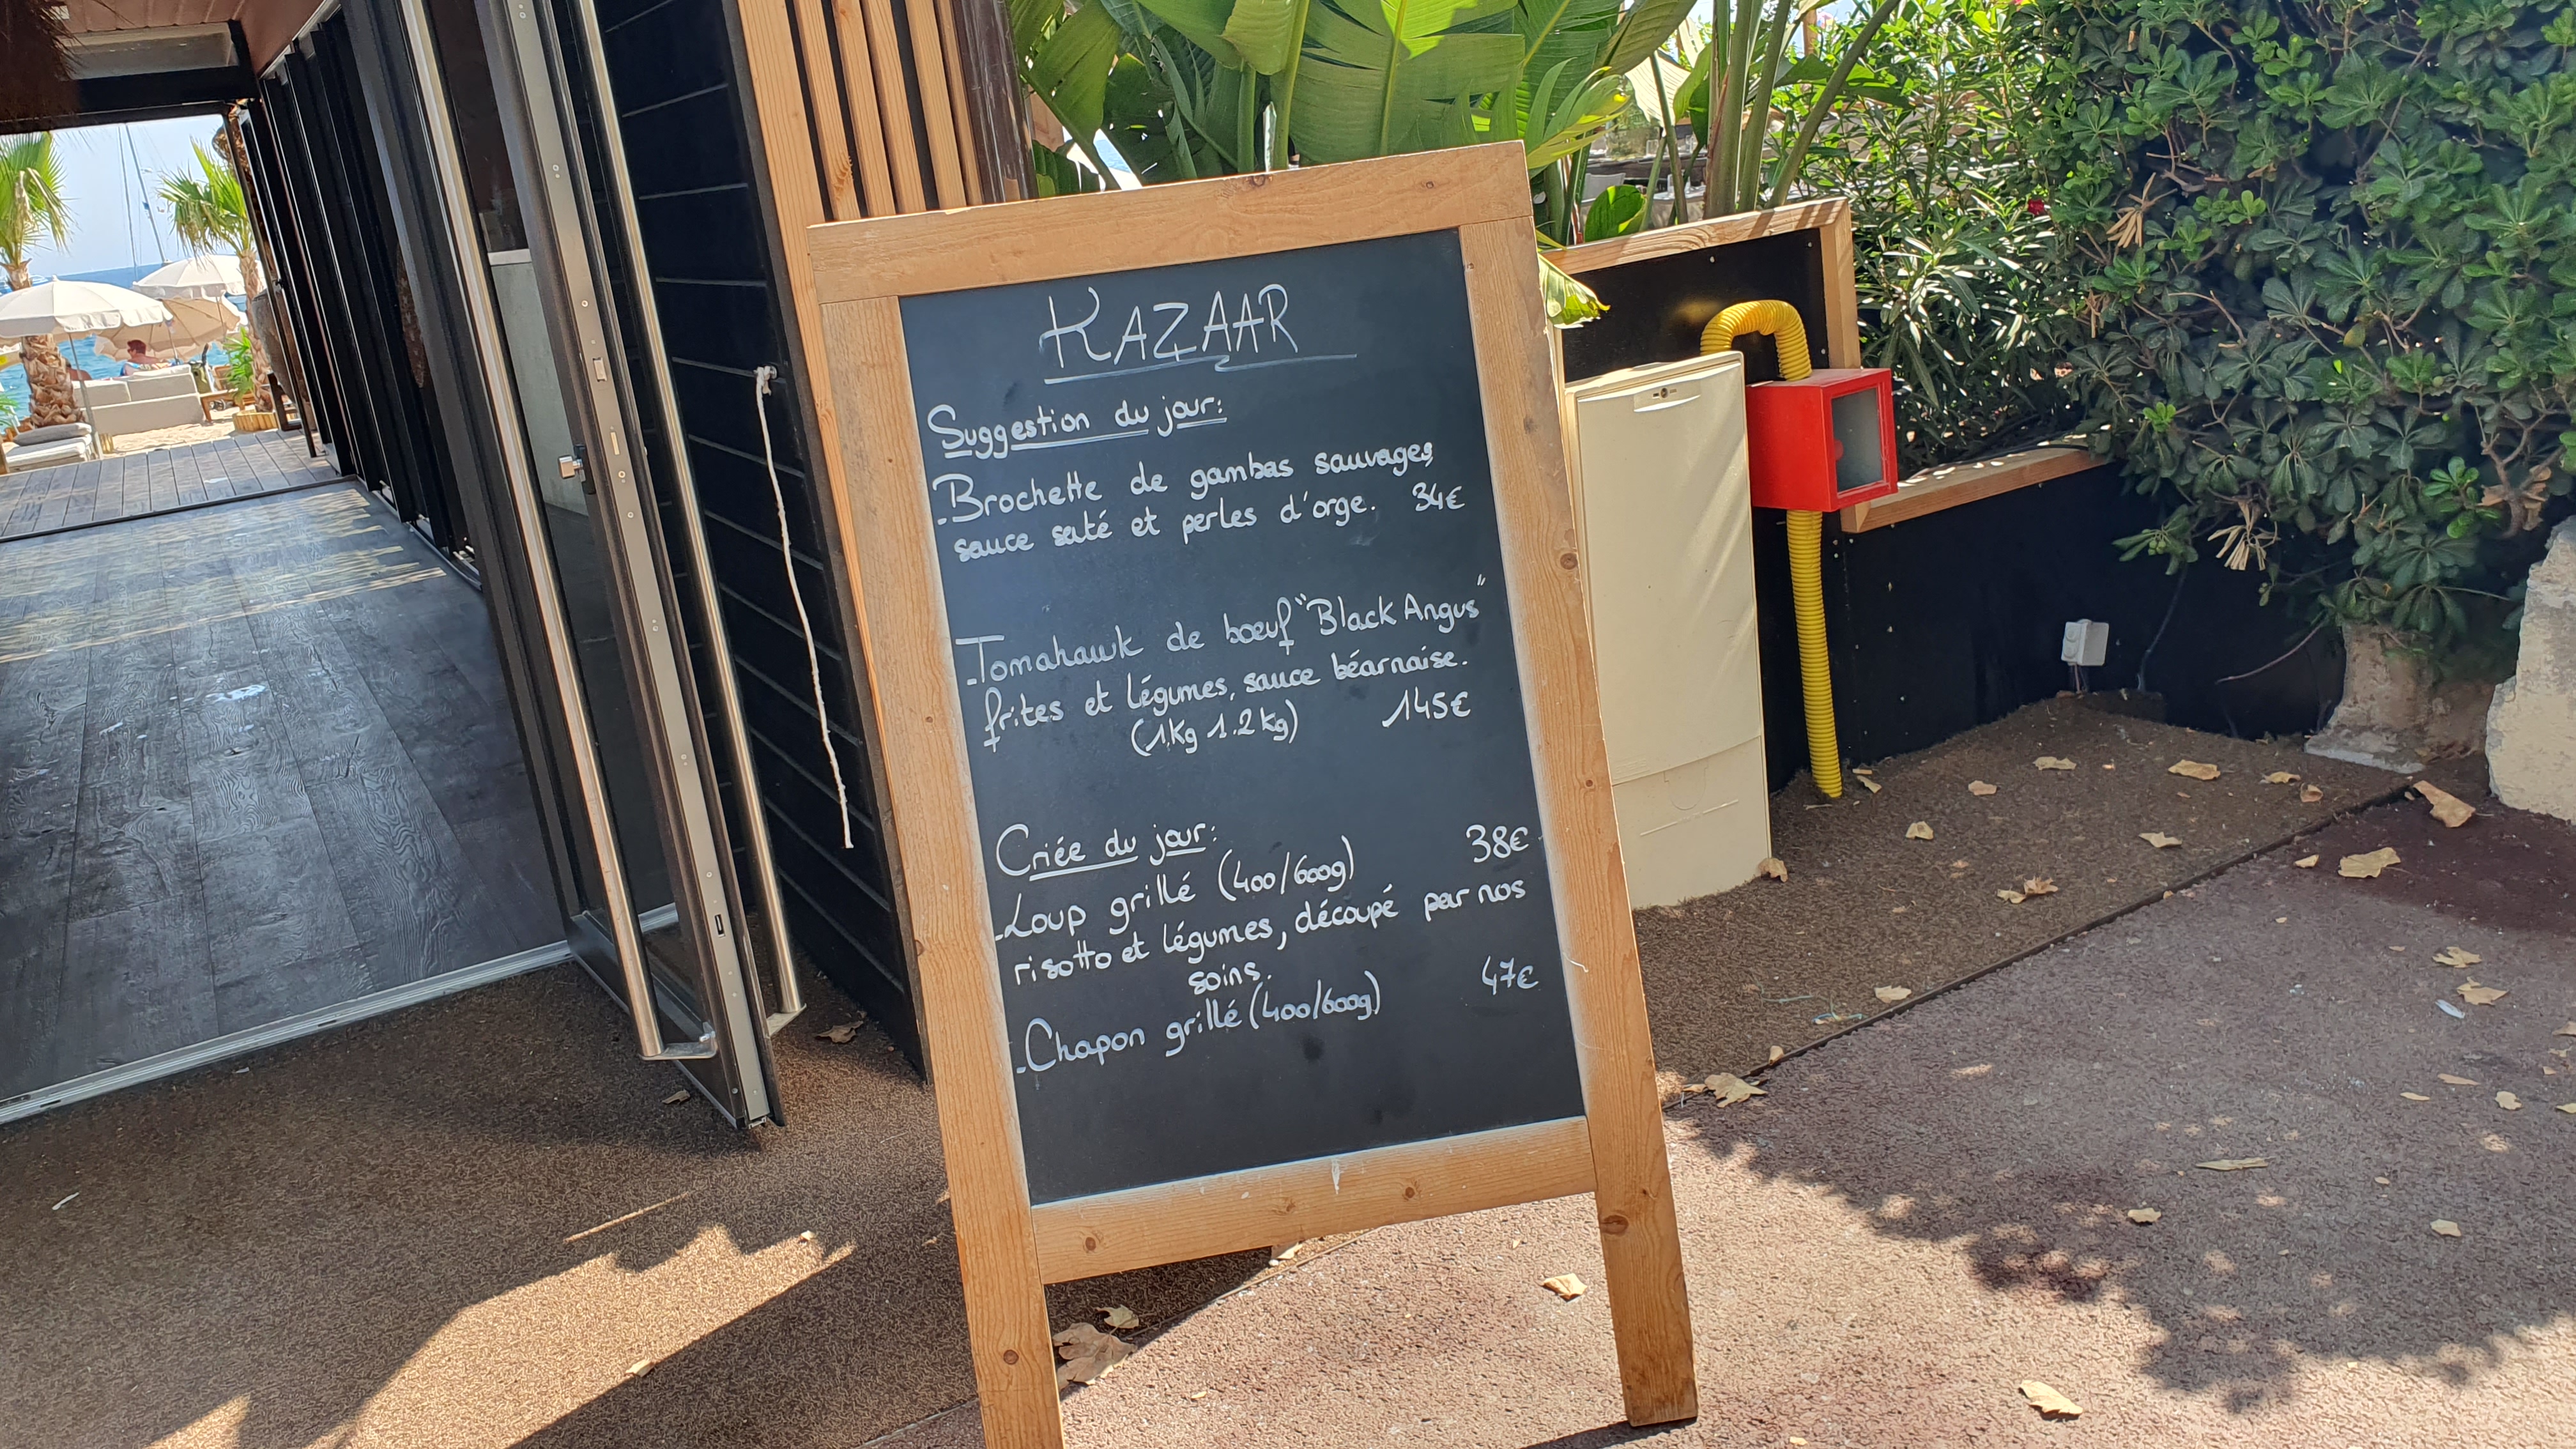 KAZAAR
Suggestion du jour:
-Brochette de gambas sauvages,
sauce saté et perles d'orge. 34€
-Tomahawk de bœuf "Black Angus"
frites et légumes, sauce béarnaise.
(1Kg 1.2kg) 145€
Criée du jour:
-Loup grillé (400/600g) 38€
risotto et légumes, découpé par nos
soins.
-Chapon grillé (400/600g) 47€